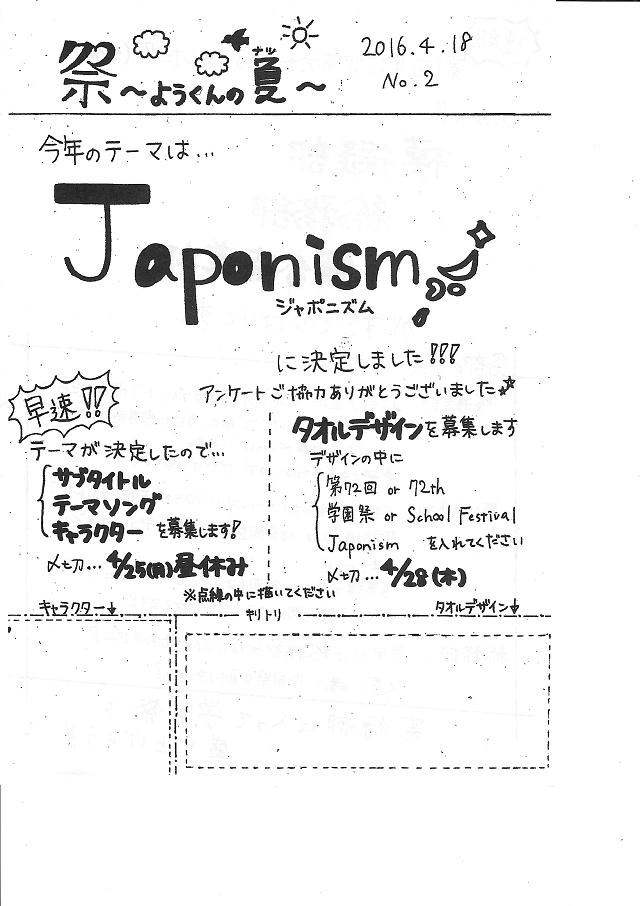 祭 ～ようくんの夏～
ナツ
2016.4.18
No.2
今年のテーマは...
Japonism
ジャポニズム
に決定しました!!!
アンケートご協力ありがとうございました
早速!!
テーマが決定したので...
サブタイトル
テーマソング
キャラクター を募集します!
〆切...4/25(月)昼休み
タオルデザインを募集します
デザインの中に
第72回 or 72th
学園祭 or School Festival
Japonism を入れてください
〆切...4/28(木)
※点線の中に描いてください
キャラクター↓
キリトリ
タオルデザイン↓